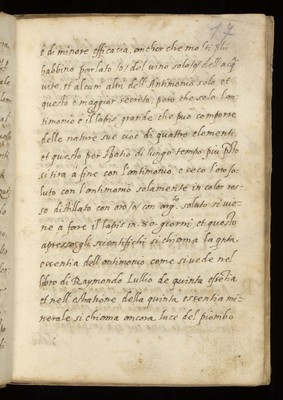 17
è di minore efficacia, anchor che molti più
habbino parlato sol del vino solo sol dell'acq
uite, et alcuni altri dell'Antimonio solo, et
questo è maggior secreto, però che solo l'an
timonio è il lapis grande che può comporre
delle nature sue cioè di quattro elementi,
et questo per spatio di lungo tempo, più p̃sto
si tira a fine con l'antimonio, e ecco l'oro so
luto con l'antimonio solamente in color ros
so distillato con oro sol con arg.º soluto si vie
ne a fare il lapis in 80 giorni et questo
apresso gli scientifichi si chiama la qnta
essentia dell'antimonio come si vede nel
libro di Raymondo Lullio de quinta essẽtia
et nell'estratione della quinta essentia mi
nerale si chiama ancora luce del piombo